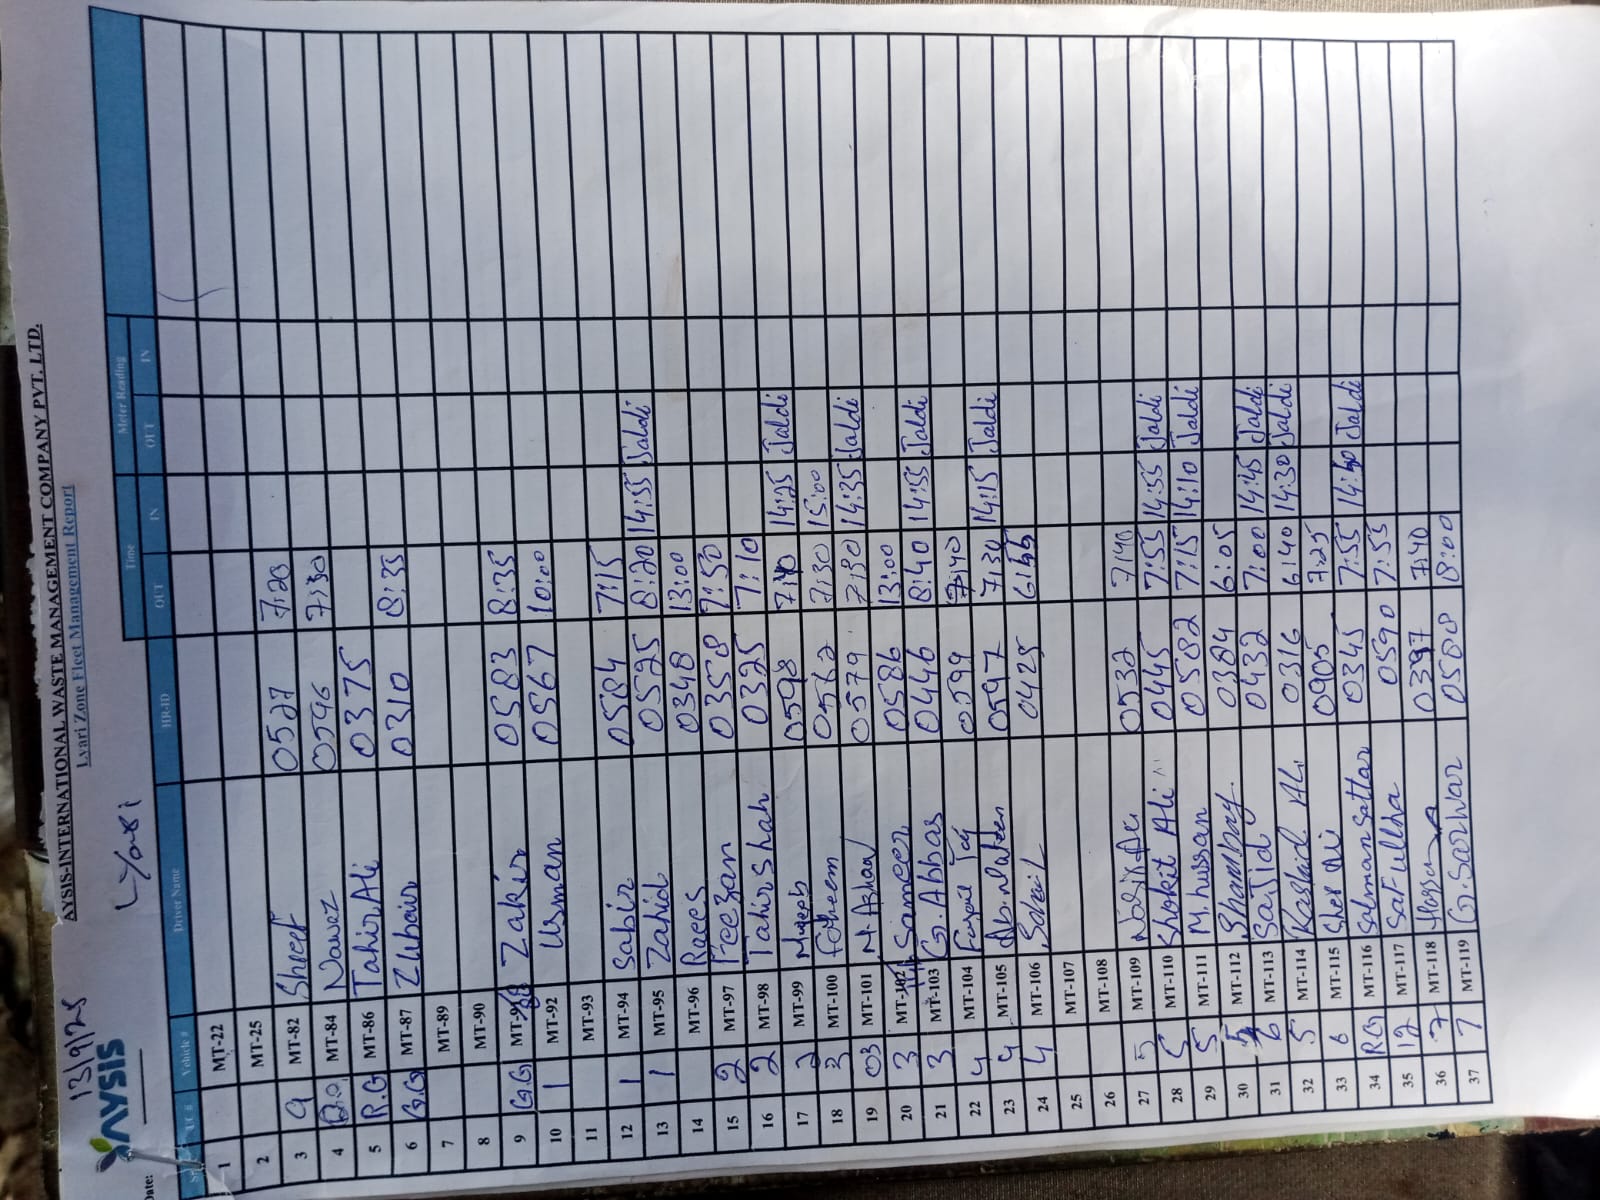 AYSIS-INTERNATIONAL WASTE MANAGEMENT COMPANY PVT. LTD.
Lyari Zone Fleet Management Report
13/9/25
AYSIS
Lyari
Date:
Time Meter Reading
Sr# UC # Vehicle # Driver Name HR-ID OUT IN OUT IN
1 MT-22
2 MT-25
3 9 MT-82 Shreef 0527 7:20
4 MT-84 Nawez 0596 7:30
5 R.G MT-86 Tahir Ali 0375
6 G.G MT-87 Zubair 0310 8:35
7 MT-89
8 MT-90
9 G.G Zakir 0583 8:35
10 1 MT-92 Usman 0567 10:00
11 MT-93
12 1 MT-94 Sabir 0584 7:15
13 1 MT-95 Zahid 0525 8:20 14:55 Jaldi
14 MT-96 Raees 0348 13:00
15 2 MT-97 Feezan 0358 7:50
16 2 MT-98 Tahir Shah 0325 7:10
17 2 MT-99 Mujeeb 0598 7:40 14:25 Jaldi
18 3 MT-100 Faheem 0562 7:30 15:00
19 03 MT-101 M. 0579 7:30 14:35 Jaldi
20 3 MT-102 Sameer 0586 13:00
21 3 MT-103 G.Abbas 0446 8:40 14:55 Jaldi
22 4 MT-104 0599 7:40
23 4 MT-105 Ab.Mateen 0597 7:30 14:15 Jaldi
24 4 MT-106 Sohail 0425 6:55
25 MT-107
26 MT-108
27 5 MT-109 Nasir Ali 0532 7:40
28 5 MT-110 Shokit Ali 0445 7:55 14:55 Jaldi
29 5 MT-111 M.hussan 0582 7:15 14:10 Jaldi
30 5 MT-112 Shambay. 0384 6:05
31 6 MT-113 Sajid 0432 7:00 14:45 Jaldi
32 5 MT-114 Rashid Ali 0316 6:40 14:30 Jaldi
33 6 MT-115 Sher Ali 0905 7:25
34 R.G MT-116 Salman Sattar 0345 7:55 Jaldi
35 12 MT-117 SaFullha 0590 7:55
36 7 MT-118 0397 7:40
37 7 MT-119 G.Sarwar 0588 8:00